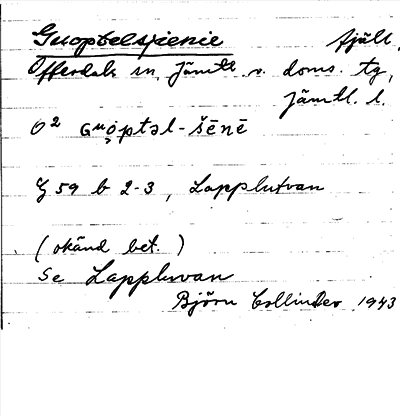 Guoptelsjenie fjäll.
Offerdals sn, Jämtl. v. doms. tg,
Jämtl. l.
O² Guo̤ptəl-šēnē
Z 59 b 2-3, Lapplutvan
(okänd bet.)
Se Lappluvan
Björn Collinder 1943